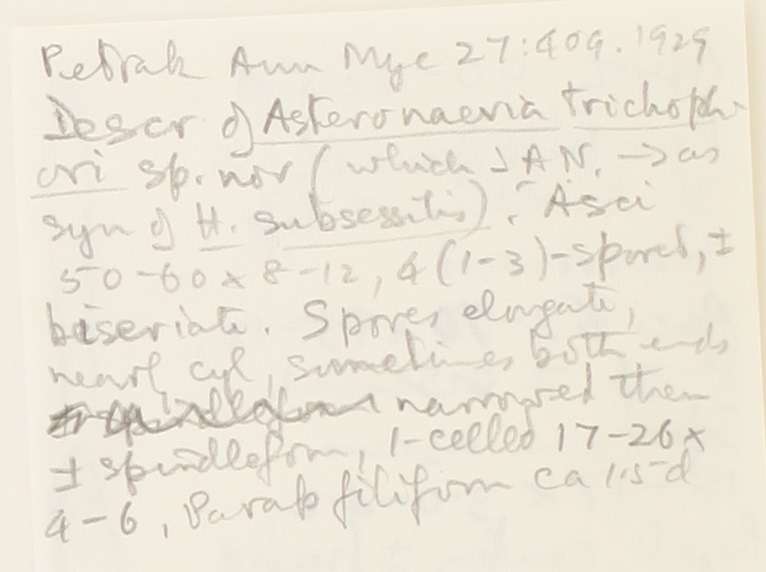 Petrak Ann Myc 27:409.1929
Descr of Asteronaevia trichoph-
ori sp. nov (which JAN. → as
syn of H. subsessilis). Asci
50-60 x 8-12, 4(1-3)-spored, ±
biseriate. Spores elongate,
nearl cyl, sometimes both ends
narrowed then
± spindleform, 1-celled 17-26 x
4-6, Parap filiform ca 1.5 d